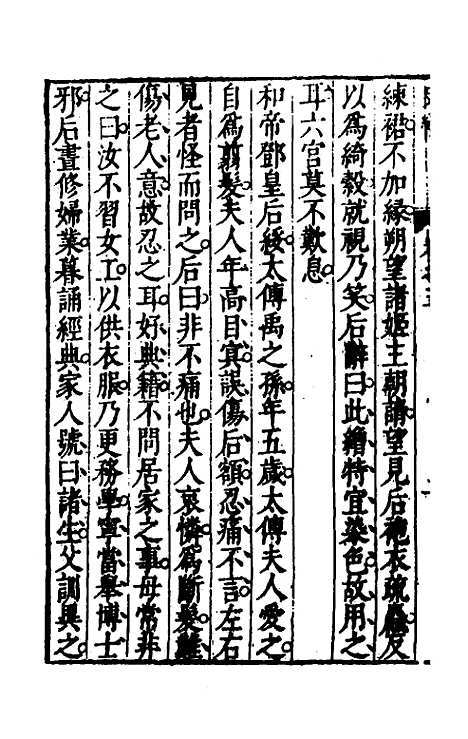 練裙不加緣朔望諸姬王朝請望見后袍衣疏麤反
以爲綺縠就視乃笑后辭曰此繒特宜染色故用之
耳六宮莫不歎息
和帝鄧皇后綏太傅禹之孫年五歲太傅夫人愛之
自爲翦髮夫人年高目冥誤傷后額忍痛不言左右
見者怪而問之后曰非不痛也夫人哀憐爲斷髮難
傷老人意故忍之耳好典籍不問居家之事母常非
之曰汝不習女工以供衣服乃更務學寧當舉博士
邪后晝修婦業暮誦經典家人號曰諸生父訓異之